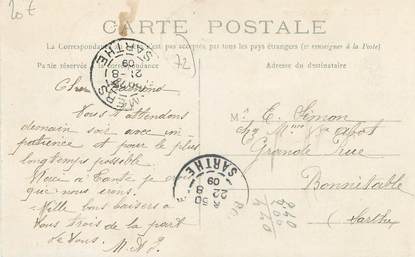 20 €
CARTE POSTALE
La Correspondance n'est pas acceptée par tous les pays étrangers (se renseigner à la Poste)
Partie réservée à la correspondance
Adresse du destinataire
72
MAMERS
21-8
09
SARTHE
Cher
Nous t'attendons
demain soir avec im-
patience et pour le plus
longtemps possible.
Merci à Tante
que nous
Mille bons baisers à
vous trois de la part
de tous.
M. A. J.
Mr E. Simon
chez Mme Vve
Grande Rue
Bonnétable
Sarthe
50
22-8
09
SARTHE